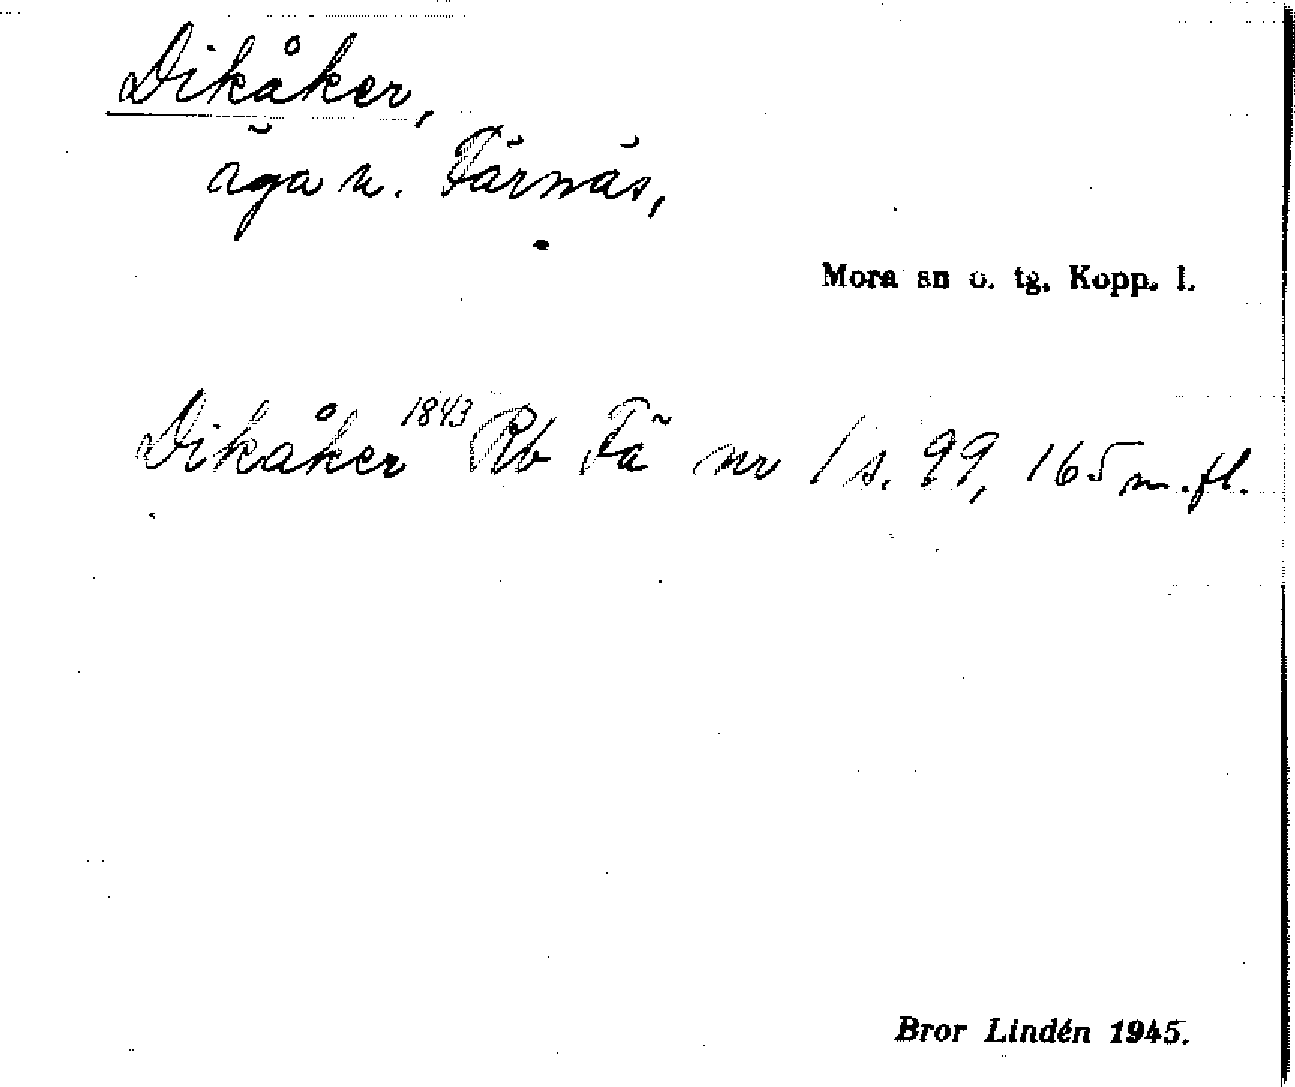 Dikåker,
äga u. Färnäs,
Mora sn o. tg. Kopp. l.
Dikåker 1843 Rb Fä nr 1 s. 99, 165 m.fl.
Bror Lindén 1945.